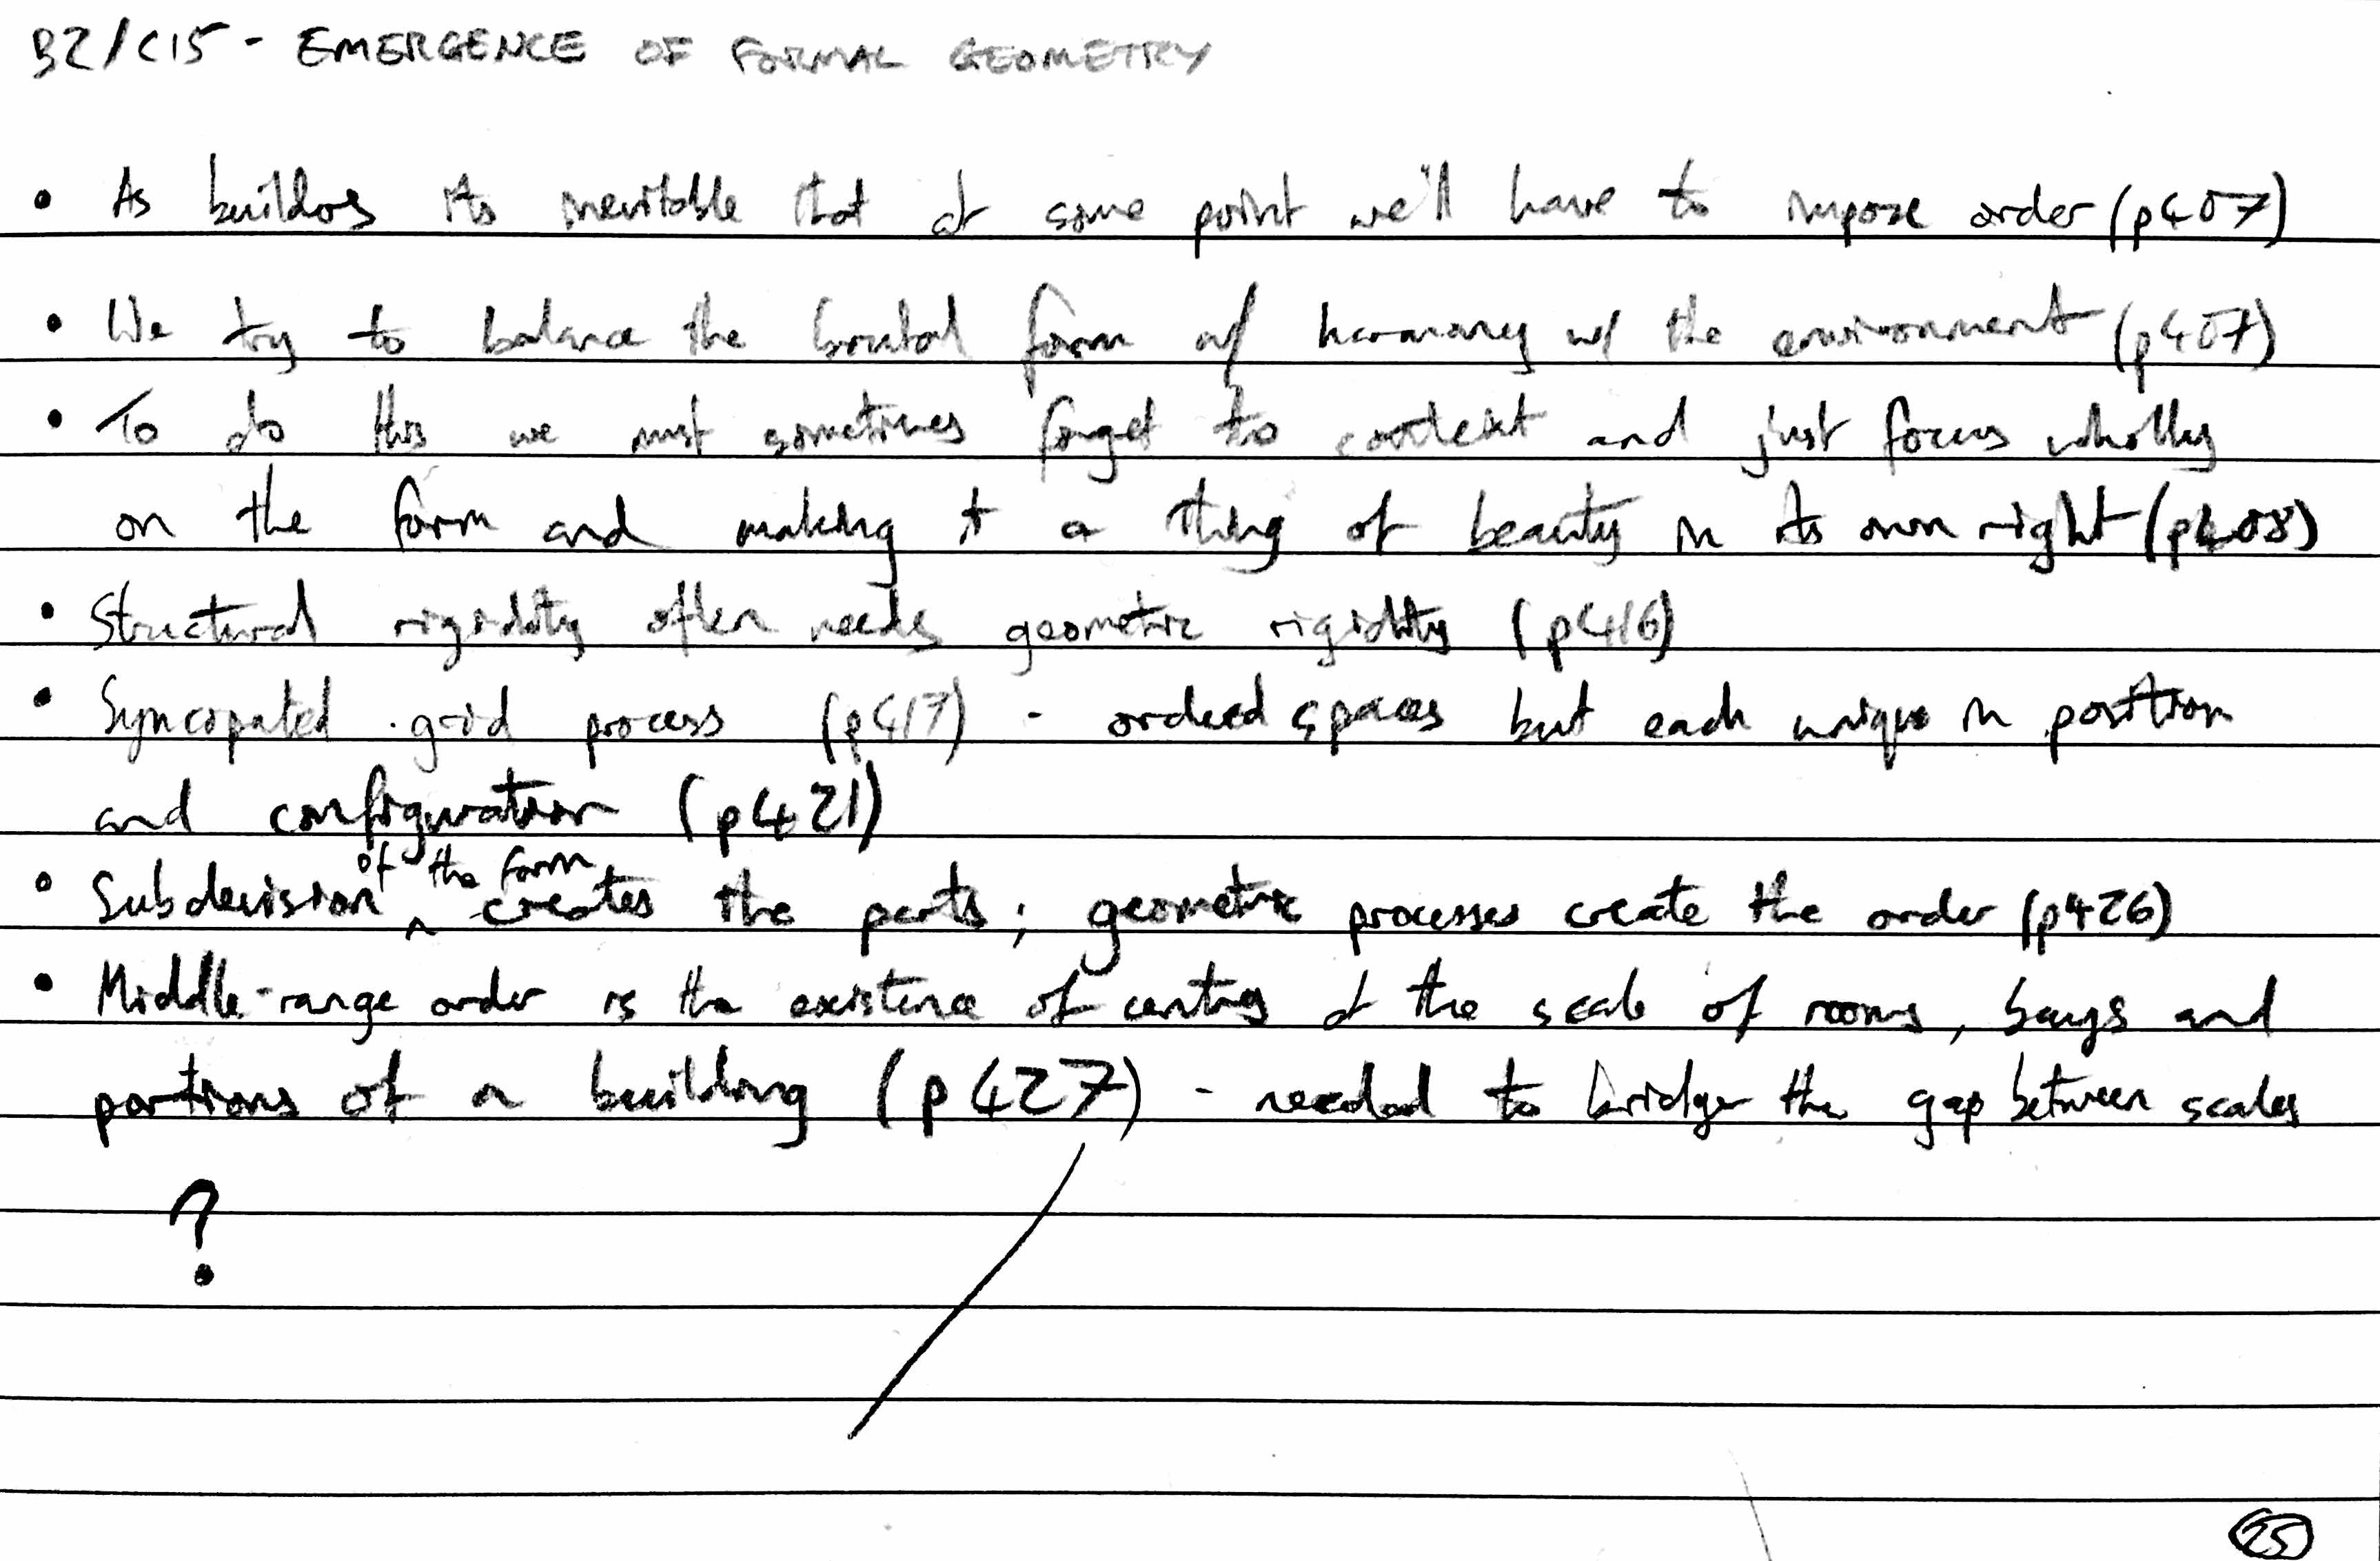 B2/C15 - EMERGENCE OF FORMAL GEOMETRY
• As builders its inevitable that at some point we'll have to impose order (p407)
• We try to balance the brutal form w/ harmony w/ the environment (p407)
• To do this we must sometimes forget to context and just focus wholly
on the form and making it a thing of beauty in its own right (p408)
• Structural rigidity often needs geometric rigidity (p416)
• Syncopated grid process (p417) - ordered spaces but each unique in position
and configuration (p421)
• Subdevision of the form creates the parts; geometric processes create the order (p426)
• Middle-range order is the existence of centres at the scale of rooms, bays and
portions of a building (p427) - needed to bridge the gap between scales
?
25